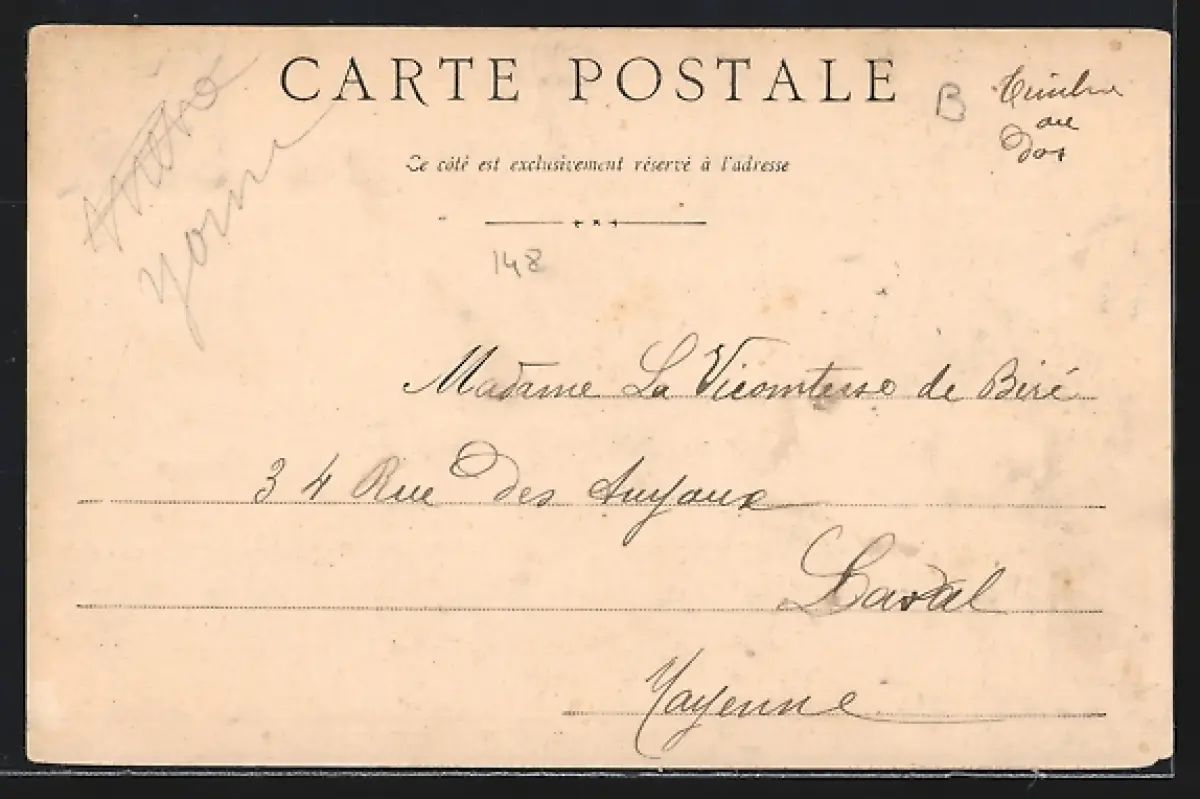 CARTE POSTALE
B
Timbre
au
Dos
Ce côté est exclusivement réservé à l'adresse
148
Madame La Vicomtesse de Biré
34 Rue Des Tuyaux
Laval
Mayenne